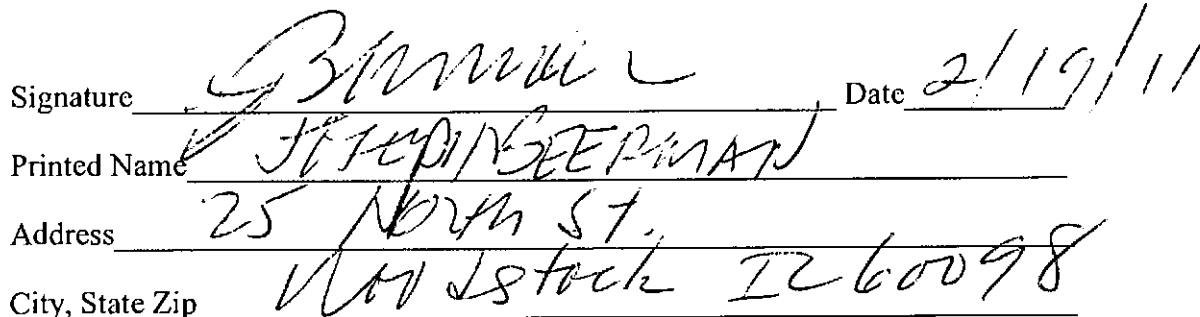 Signature Date 2/19/11
Printed Name JOSEPH BEERMAN
Address 25 North St.
City, State Zip Woodstock IL 60098